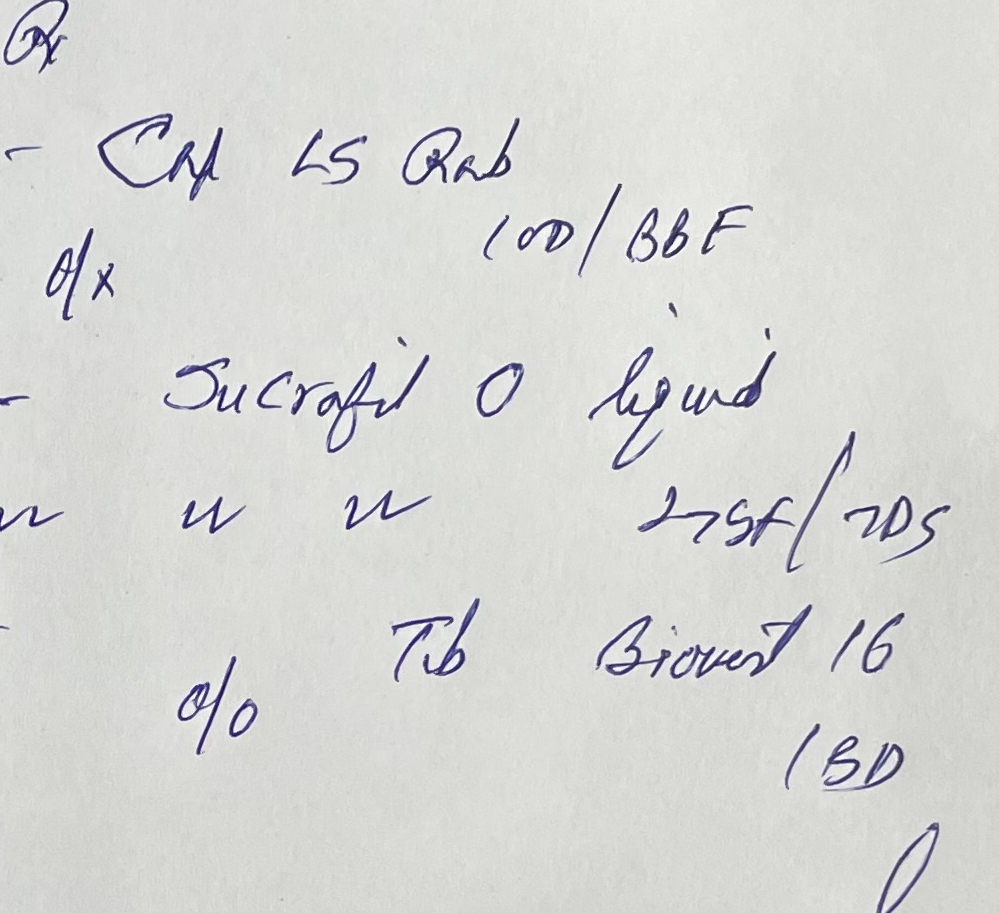 Rx
- Cap LS Rab
1 OD / BBF
- Sucrafil O liquid
2 TSF / TDS
- Tab Biovert 16
1 BD